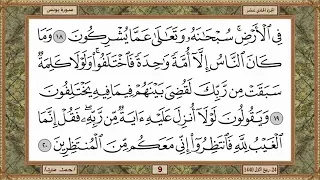 سورة يونس
الجزء الحادي عشر
فِي ٱلْأَرْضِۚ سُبْحَٰنَهُۥ وَتَعَٰلَىٰ عَمَّا يُشْرِكُونَ ١٨ وَمَا
كَانَ ٱلنَّاسُ إِلَّآ أُمَّةً وَٰحِدَةً فَٱخْتَلَفُوا۟ۚ وَلَوْلَا كَلِمَةٌ
سَبَقَتْ مِن رَّبِّكَ لَقُضِىَ بَيْنَهُمْ فِيمَا فِيهِ يَخْتَلِفُونَ
١٩ وَيَقُولُونَ لَوْلَآ أُنزِلَ عَلَيْهِ ءَايَةٌ مِّن رَّبِّهِۦۖ فَقُلْ إِنَّمَا
ٱلْغَيْبُ لِلَّهِ فَٱنتَظِرُوٓا۟ إِنِّى مَعَكُم مِّنَ ٱلْمُنتَظِرِينَ ٢٠
24 - ربيع الأول 1440
9